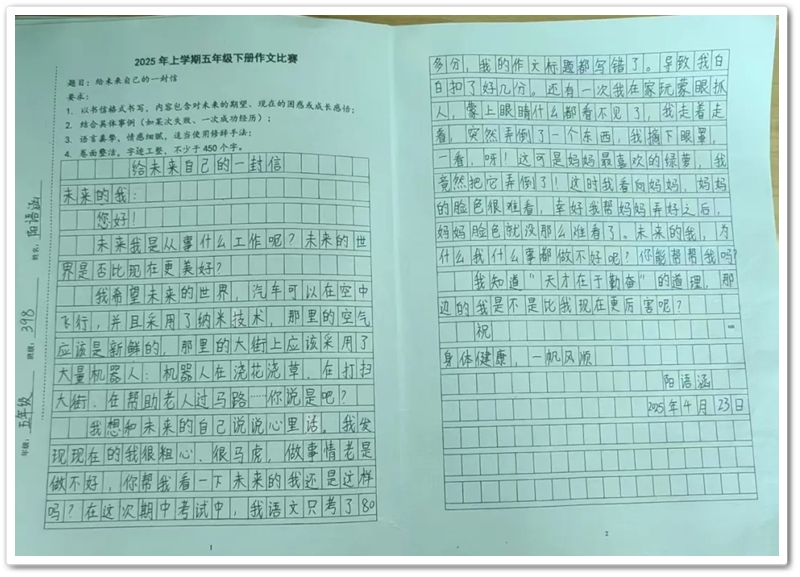 2025年上学期五年级下册作文比赛
题目：给未来自己的一封信
要求：
1. 以书信格式书写，内容包含对未来的期望、现在的困惑或成长感悟；
2. 结合具体事例（如某次失败、一次成功经历）；
3. 语言真挚、情感细腻，适当使用修辞手法；
4. 卷面整洁，字迹工整，不少于450个字。
年级：五年级 班级：398 姓名：阳语涵
给未来自己的一封信
未来的我：
您好！
未来我是从事什么工作呢？未来的世
界是否比现在更美好？
我希望未来的世界，汽车可以在空中
飞行，并且采用了纳米技术，那里的空气
应该是新鲜的，那里的大街上应该采用了
大量机器人：机器人在浇花浇草、在打扫
大街、在帮助老人过马路……你说是吧？
我想和未来的自己说说心里话。我发
现现在的我很粗心、很马虎，做事情老是
做不好，你帮我看一下未来的我还是这样
吗？在这次期中考试中，我语文只考了80
1
多分，我的作文标题都写错了。导致我白
白扣了好几分。还有一次我在家玩蒙眼抓
人，蒙上眼睛什么都看不见了，我走着走
着，突然弄倒了一个东西，我摘下眼罩，
一看，呀！这可是妈妈最喜欢的绿萝，我
竟然把它弄倒了！这时我看向妈妈，妈妈
的脸色很难看，幸好我帮妈妈弄好之后，
妈妈脸色就没那么难看了。未来的我，为
什么我什么事都做不好呢？你能帮帮我吗？
我知道“天才在于勤奋”的道理，那
边的我是不是比我现在更厉害呢？
祝
身体健康，一帆风顺
阳语涵
2025年4月23日
2